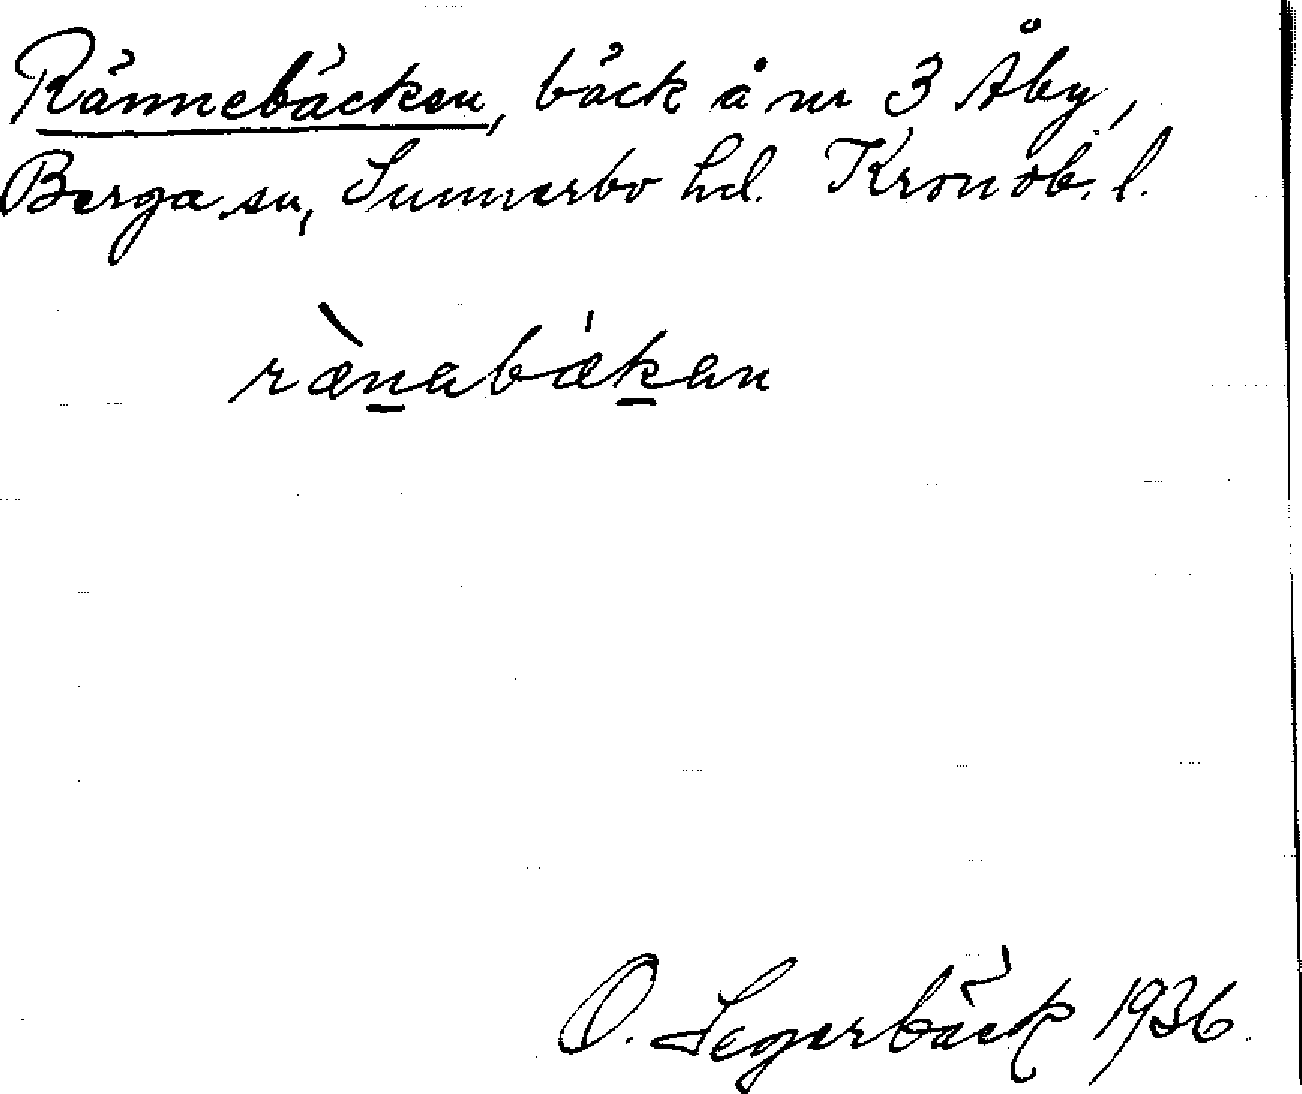 Rännebäcken, bäck å nr 3 Åby,
Berga sn, Sunnerbo hd. Kronob. l.
rænabækan
O. Segerbäck 1936.